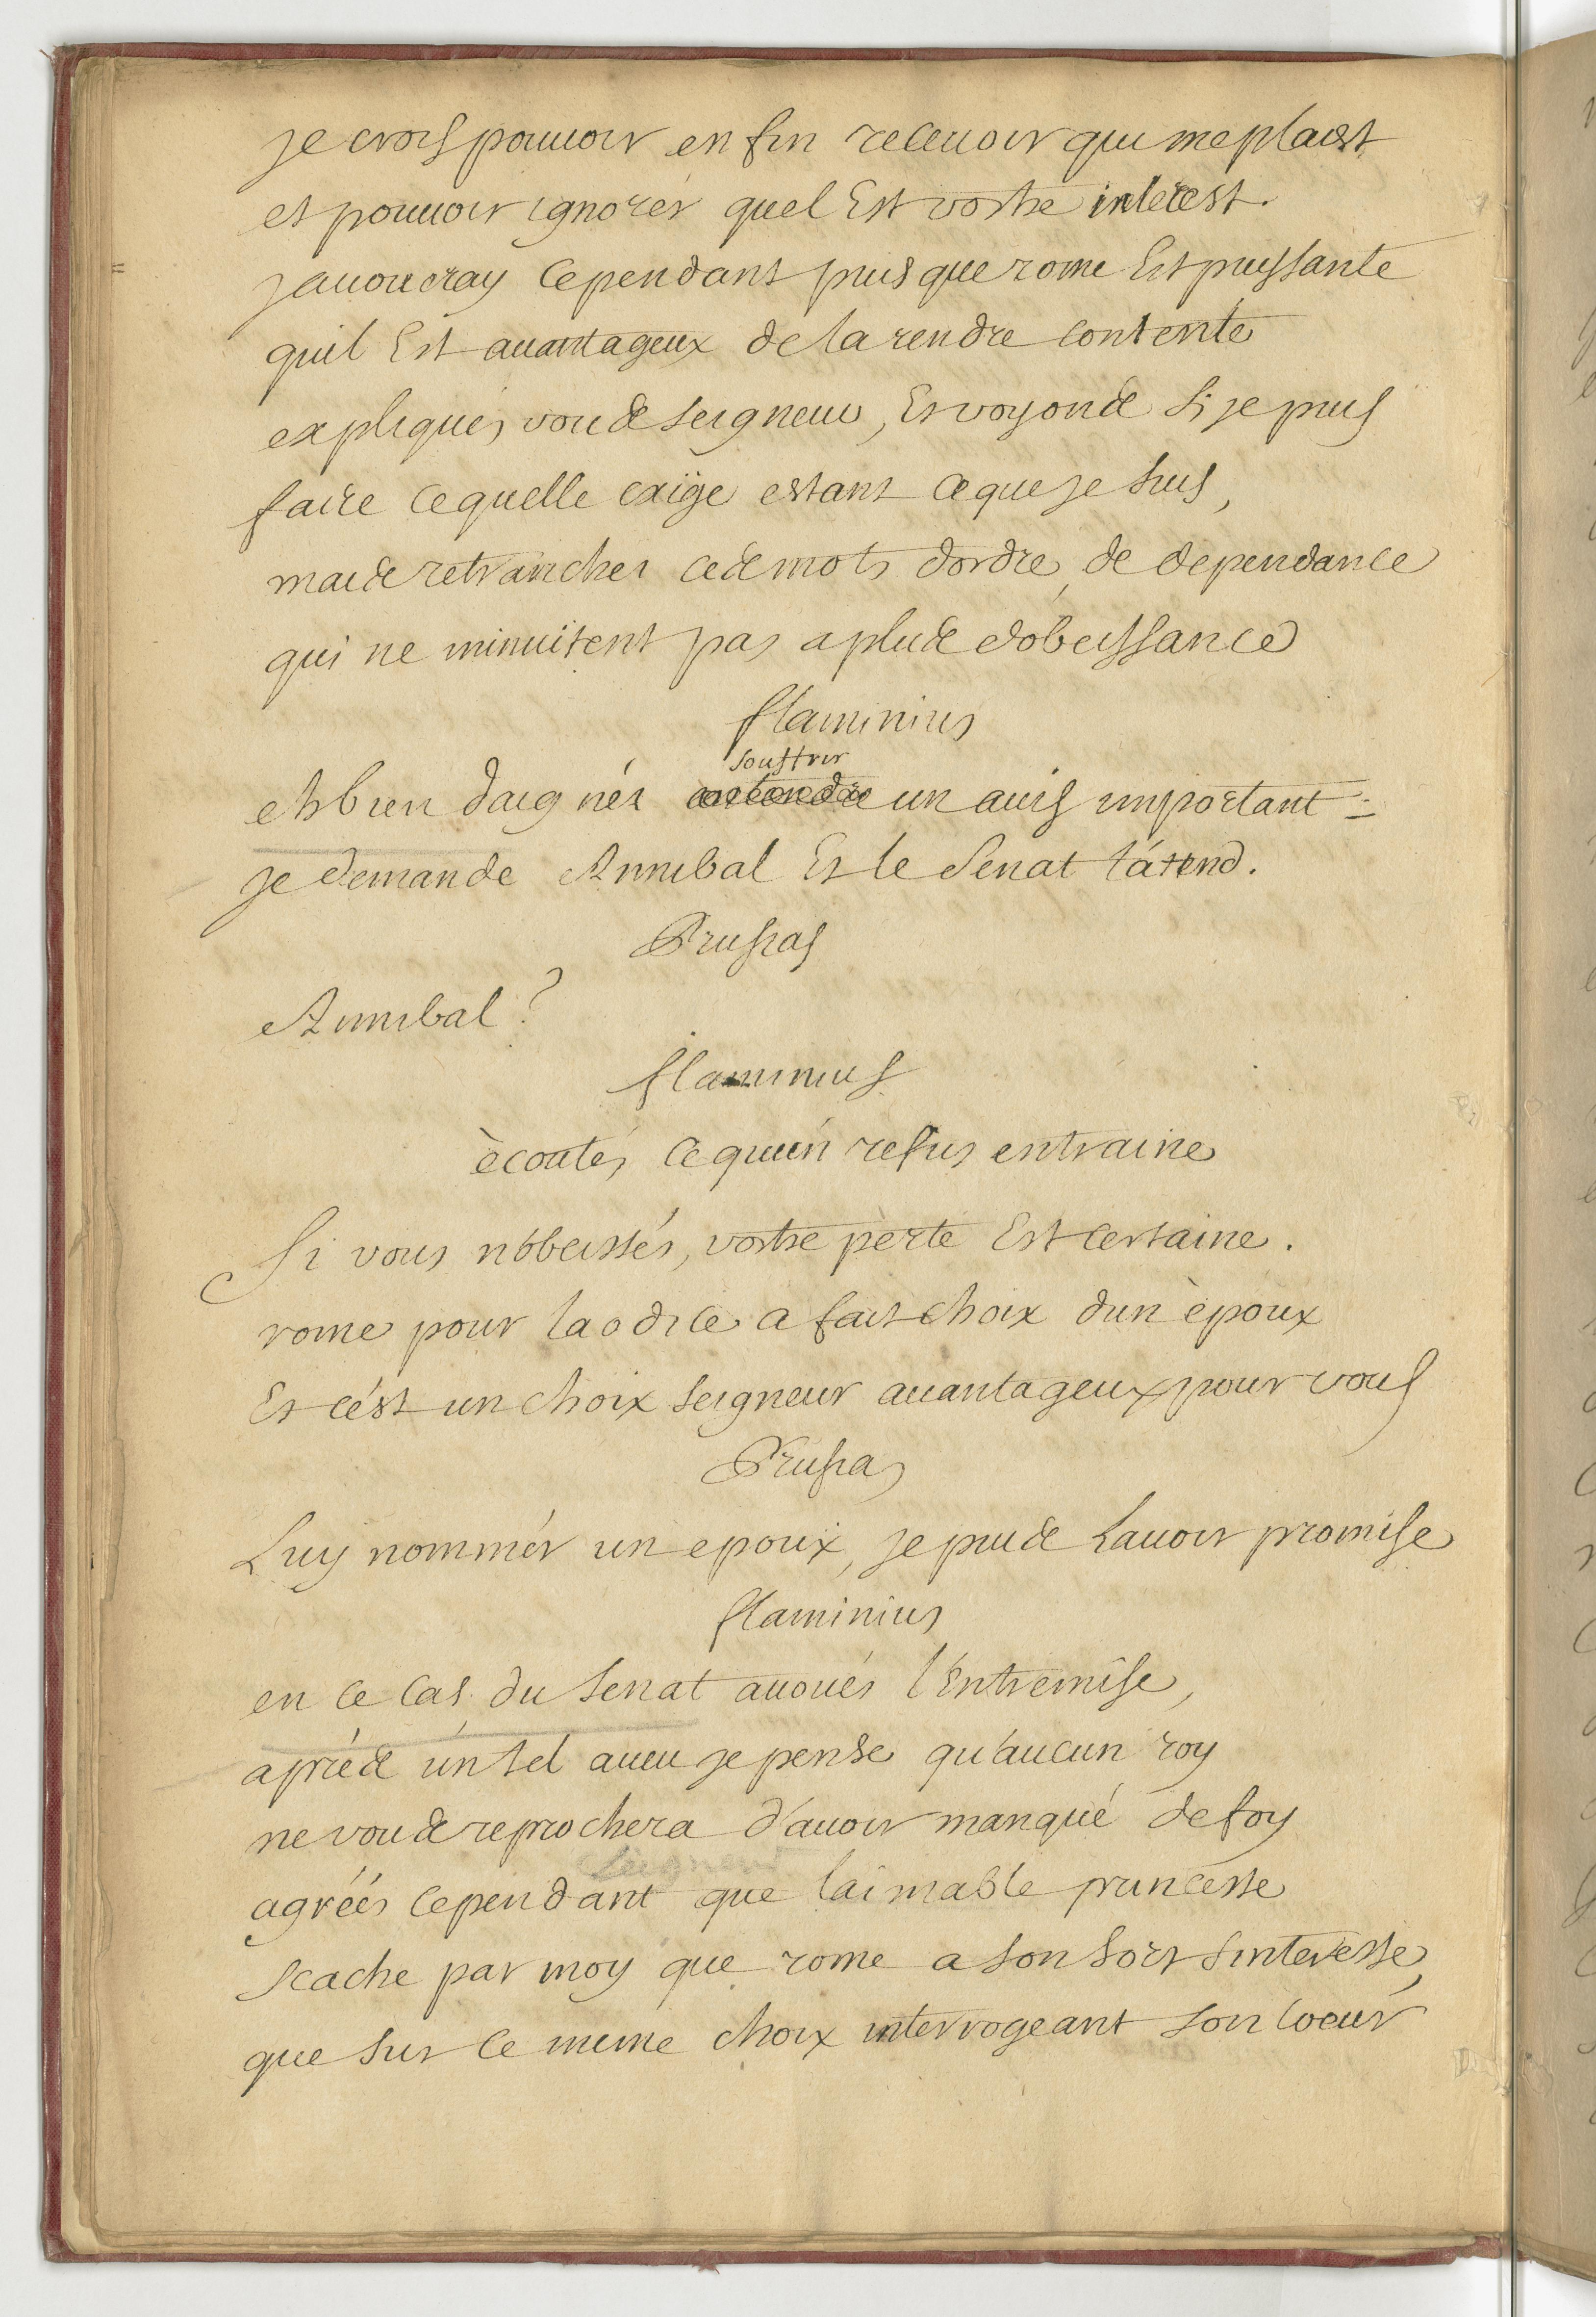 je crois pouuoir enfin receuoir qui me plaist
et pouuoir ignorer quel Est vostre interest.
jauoueray cependant puisque rome Est puissante
quil Est auantageux de la rendre contente
expliqués vous seigneur, Et voyons si je puis
faire ce quelle exige estant ce que je suis,
mais retrancher ces mots dordre, de dependance
qui ne minuitent pas a plus dobeissance
flaminius
souffrir
eh bien daignés entendre un auis important :
je demande Annibal Et le Senat l'átend.
Prusias
Annibal ?
flaminius
ècoutés ce quun refus entraine
Si vous n'obeissés, vostre perte Est certaine.
rome pour laodice a fait choix dun èpoux
Et cést un choix seigneur auantageux pour vous
Prusias
Luy nommér un epoux, je puis Lauoir promise
flaminius
en ce cas du senat auoués l'Entremise,
aprés un tel aueu je pense qu'aucun roy
ne vous reprochera d'auoir manqué de foy
seigneur
agréés cependant que l'aimable princesse
scache par moy que rome a son sort sinteresse,
que sur ce meme choix interrogeant son coeur